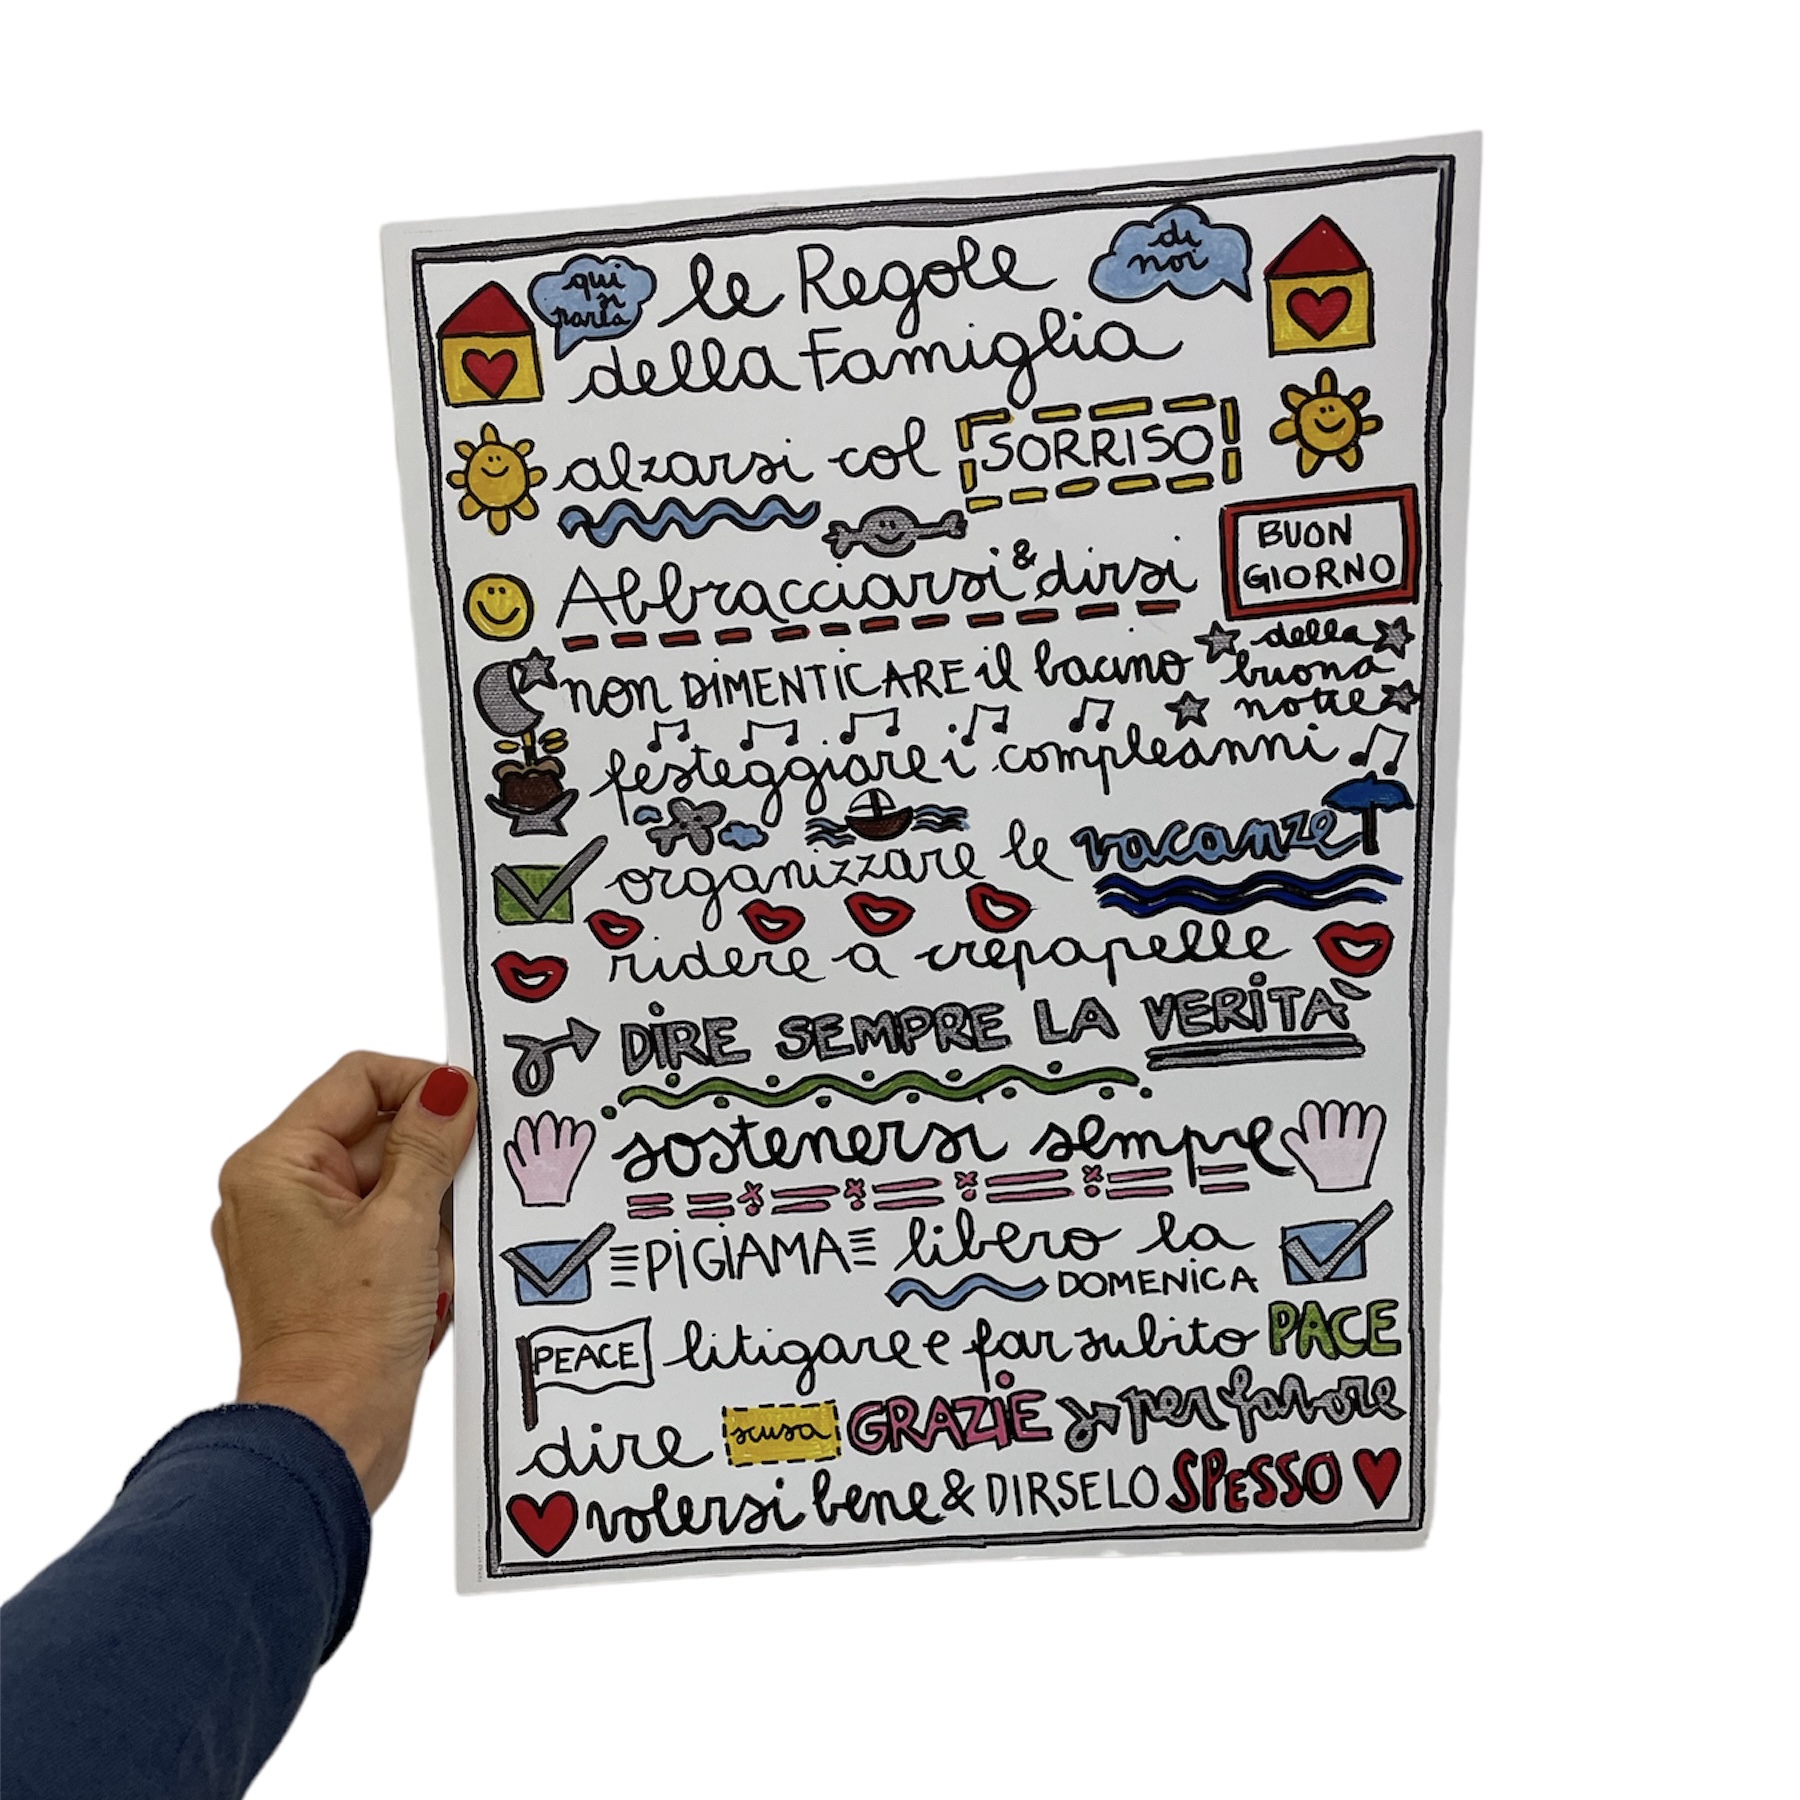 qui
si
parla
le Regole
di
noi
della Famiglia
alzarsi col SORRISO
Abbracciarsi & dirsi
BUON
GIORNO
non DIMENTICARE il bacino
della
buona
notte
festeggiare i compleanni
organizzare le vacanze
ridere a crepapelle
DIRE SEMPRE LA VERITA'
sostenersi sempre
PIGIAMA libero la
DOMENICA
PEACE litigare e far subito PACE
dire scusa GRAZIE per favore
volersi bene & DIRSELO SPESSO